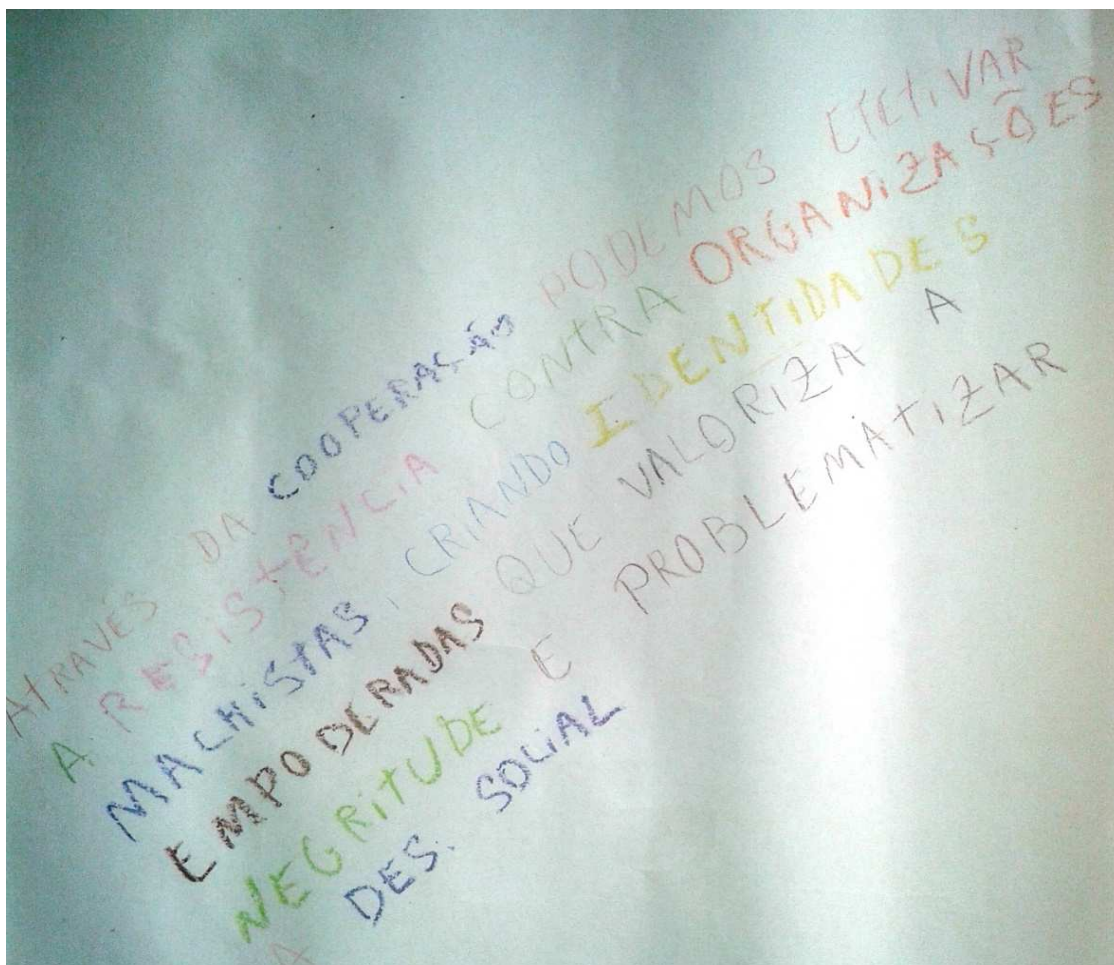 ATRAVÉS DA COOPERAÇÃO PODEMOS EFETIVAR
A RESISTÊNCIA CONTRA ORGANIZAÇÕES
MACHISTAS, CRIANDO IDENTIDADES
EMPODERADAS QUE VALORIZA A
NEGRITUDE E PROBLEMATIZAR
A DES. SOCIAL